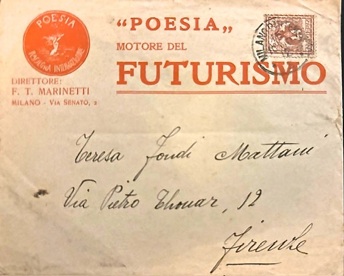 POESIA
RASSEGNA INTERNAZIONALE
DIRETTORE:
F. T. MARINETTI
MILANO - VIA SENATO, 2
"POESIA„
MOTORE DEL
FUTURISMO
MILANO
Teresa Fondi Mattani
Via Pietro Thouar, 12
Firenze